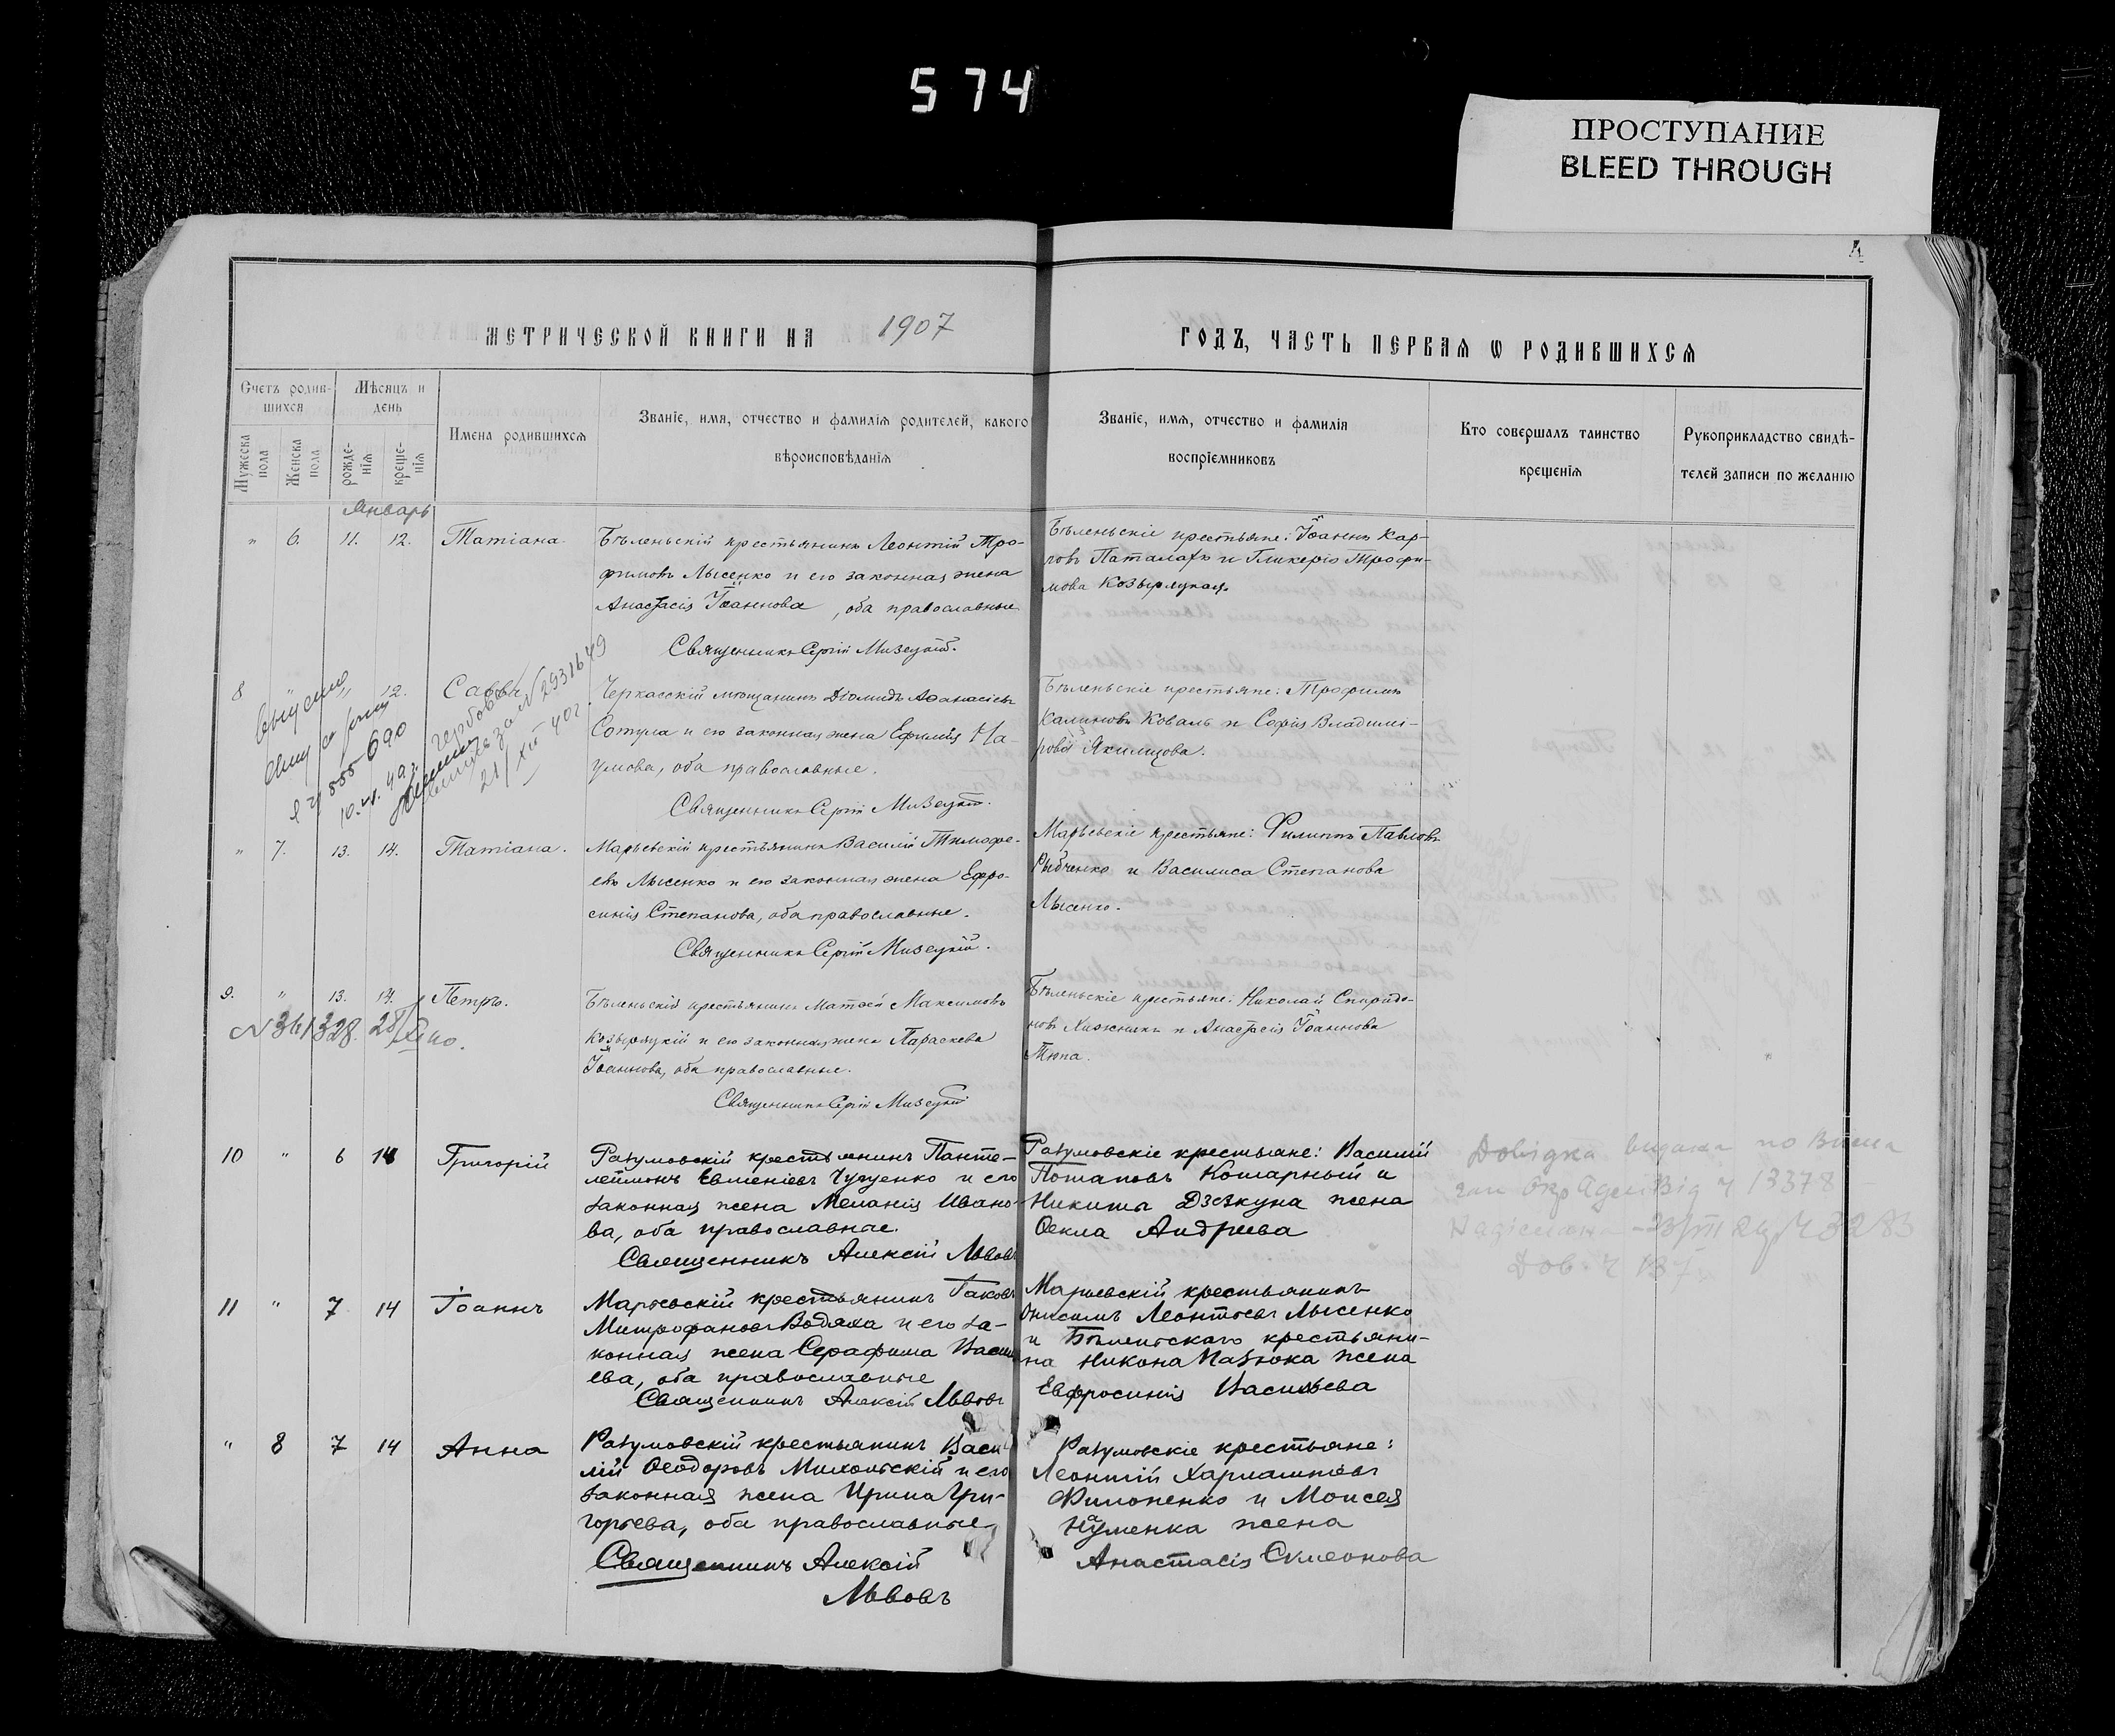 574
ПРОСТУПАНИЕ
BLEED THROUGH
4
МЕТРИЧЕСКОЙ КНИГИ НА 1907
ГОДЪ, ЧАСТЬ ПЕРВАЯ Ѡ РОДИВШИХСЯ
Счетъ родив-
шихся
Мѣсяцъ и
день
Мужеска
пола
Женска
пола
рожде-
нія
креще-
нія
Имена родившихся
Званіе, имя, отчество и фамилія родителей, какого
вѣроисповѣданія
Званіе, имя, отчество и фамилія
воспріемниковъ
Кто совершалъ таинство
крещенія
Рукоприкладство свидѣ-
телей записи по желанію
Январь
" 6. 11. 12. Татіана.
Бѣленьскій крестьянинъ Леонтій Тро-
фимовъ Лысенко и его законная жена
Анастасія Іоаннова, оба православные
Священникъ Сергій Мизецкій.
Бѣленьскіе крестьяне: Іоаннъ Кар-
повъ Паталахъ и Гликерія Трофи-
мова Козыряцкая.
8 " " 12. Савва
690
N 2931649
21/XII 40 г.
Черкасскій мѣщанинъ Діомидъ Аѳанасіевъ
Сотула и его законная жена Ефимія На-
умова, оба православные.
Священникъ Сергій Мизецкій.
Бѣленьскіе крестьяне: Трофимъ
Калиновъ Коваль и Софія Владимі-
рова Якимцова.
" 7. 13. 14. Татіана.
Марьевскій крестьянинъ Василій Тимофе-
евъ Лысенко и его законная жена Ефро-
синія Степанова, оба православные.
Священникъ Сергій Мизецкій.
Марьевскіе крестьяне: Филиппъ Павловъ
Рыбченко и Василиса Степанова
Лысенко.
9. " 13. 14. Петръ.
N 361328. 28
Бѣленьскій крестьянинъ Матѳей Максимовъ
Козыряцкій и его законная жена Параскева
Іоаннова, оба православные.
Священникъ Сергій Мизецкій
Бѣленьскіе крестьяне: Николай Спиридо-
новъ Хижнякъ и Анастасія Іоаннова
Тюпа.
10 " 6 14 Григорій
Разумовскій крестьянинъ Панте-
леймонъ Евменіевъ Чугуенко и его
законная жена Меланія Ивано-
ва, оба православные.
Священникъ Алексій Львовъ
Разумовскіе крестьяне: Василій
Потаповъ Комарный и
Никиты Дзекуна жена
Ѳекла Андреева
Довідка видана по
13378
3283
Дов. Ч
11 " 7 14 Іоаннъ
Марьевскій крестьянинъ Іаковъ
Митрофановъ Водяха и его за-
конная жена Серафима Васил
ева, оба православные
Священникъ Алексій Львовъ
Марьевскій крестьянинъ
Онисимъ Леонтьевъ Лысенко
и Бѣленьскаго крестьяни-
на Никона Мазюка жена
Евфросинія Васильева
" 8 7 14 Анна
Разумовскій крестьянинъ Васи-
лій Ѳеодоровъ Михольскій и его
законная жена Ирина Гри-
горьева, оба православные
Священникъ Алексій
Львовъ
Разумовскіе крестьяне:
Леонтій Харлампіевъ
Филоненко и Моисея
Науменка жена
Анастасія Симеонова